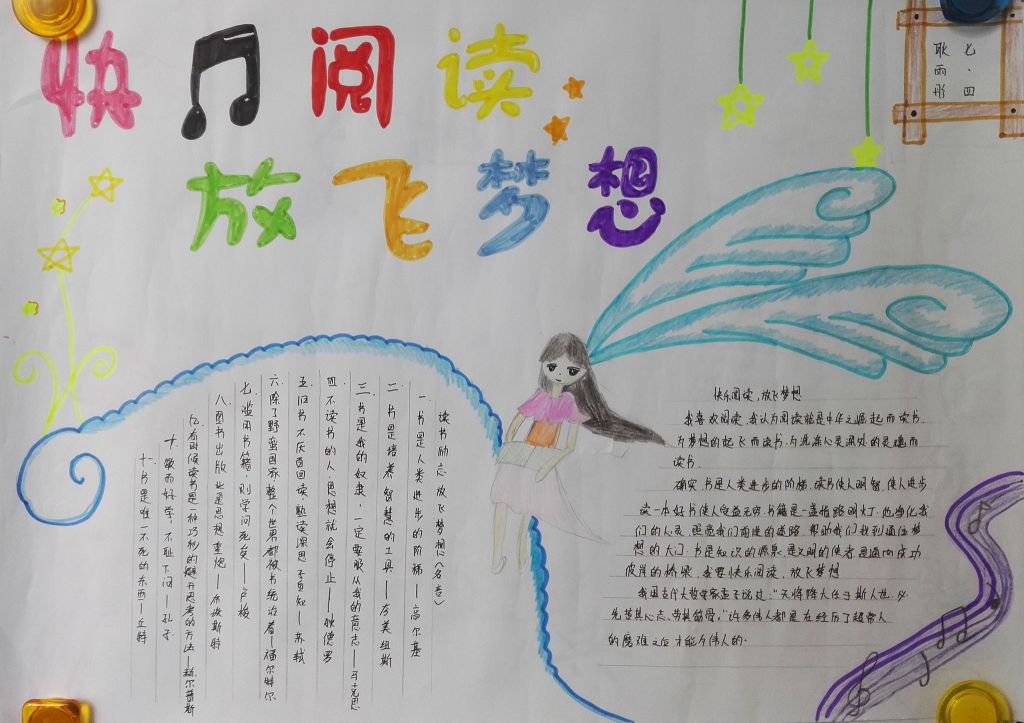 快 阅读
放飞梦想
七.四
耿雨彤
读书励志 放飞梦想(名言)
一.书是人类进步的阶梯——高尔基
二.书是培养智慧的工具——夸美纽斯
三.书是我的奴隶,一定要服从我的意志——马克思
四.不读书的人,思想就会停止——狄德罗
五.旧书不厌百回读,熟读深思子自知——苏轼
六.除了野蛮国家,整个世界都被书统治着——福尔特尔
七.滥用书籍 则学问死矣——卢梭
八.图书出版 业是思想重炮——布埃斯特
九.有时候读书是一种巧妙的避开思考的方法——赫尔普斯
十.敏而好学,不耻下问——孔子
十一.书是唯一不死的东西——丘特
快乐阅读,放飞梦想
我喜欢阅读,我认为阅读就是中华之崛起而读书.
为梦想的起飞而读书.为洗涤心灵深处的灵魂而
读书.
确实,书是人类进步的阶梯.读书使人明智,使人进步
读一本好书使人受益无穷.书籍是一盏指路明灯.他净化我
们的心灵.照亮我们前进的道路.帮助我们找到通往梦
想的大门.书是知识的源泉.是文明的使者.是通向成功
彼岸的桥梁.我要快乐阅读,放飞梦想
我国古代大哲学家孟子说过:"天将降大任于斯人也.必
先苦其心志、劳其筋骨,"许多伟人都是在经历了超常人
的磨难之后才能为伟人的.